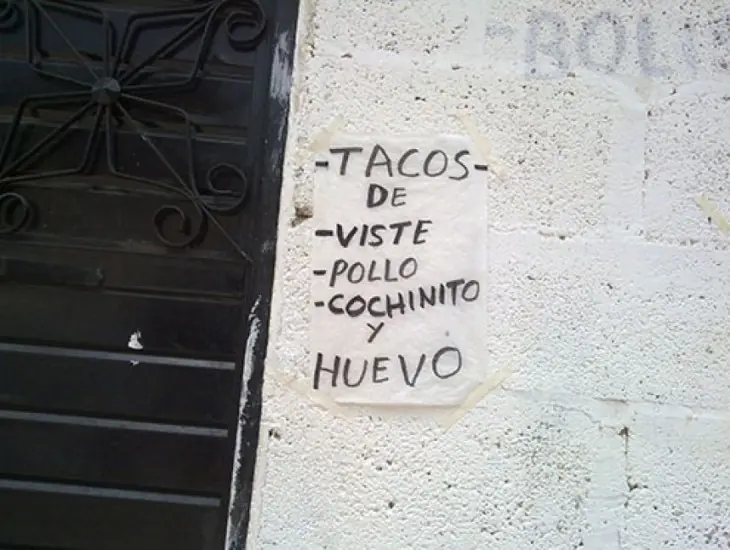 -TACOS-
DE
-VISTE
-POLLO
-COCHINITO
Y
HUEVO